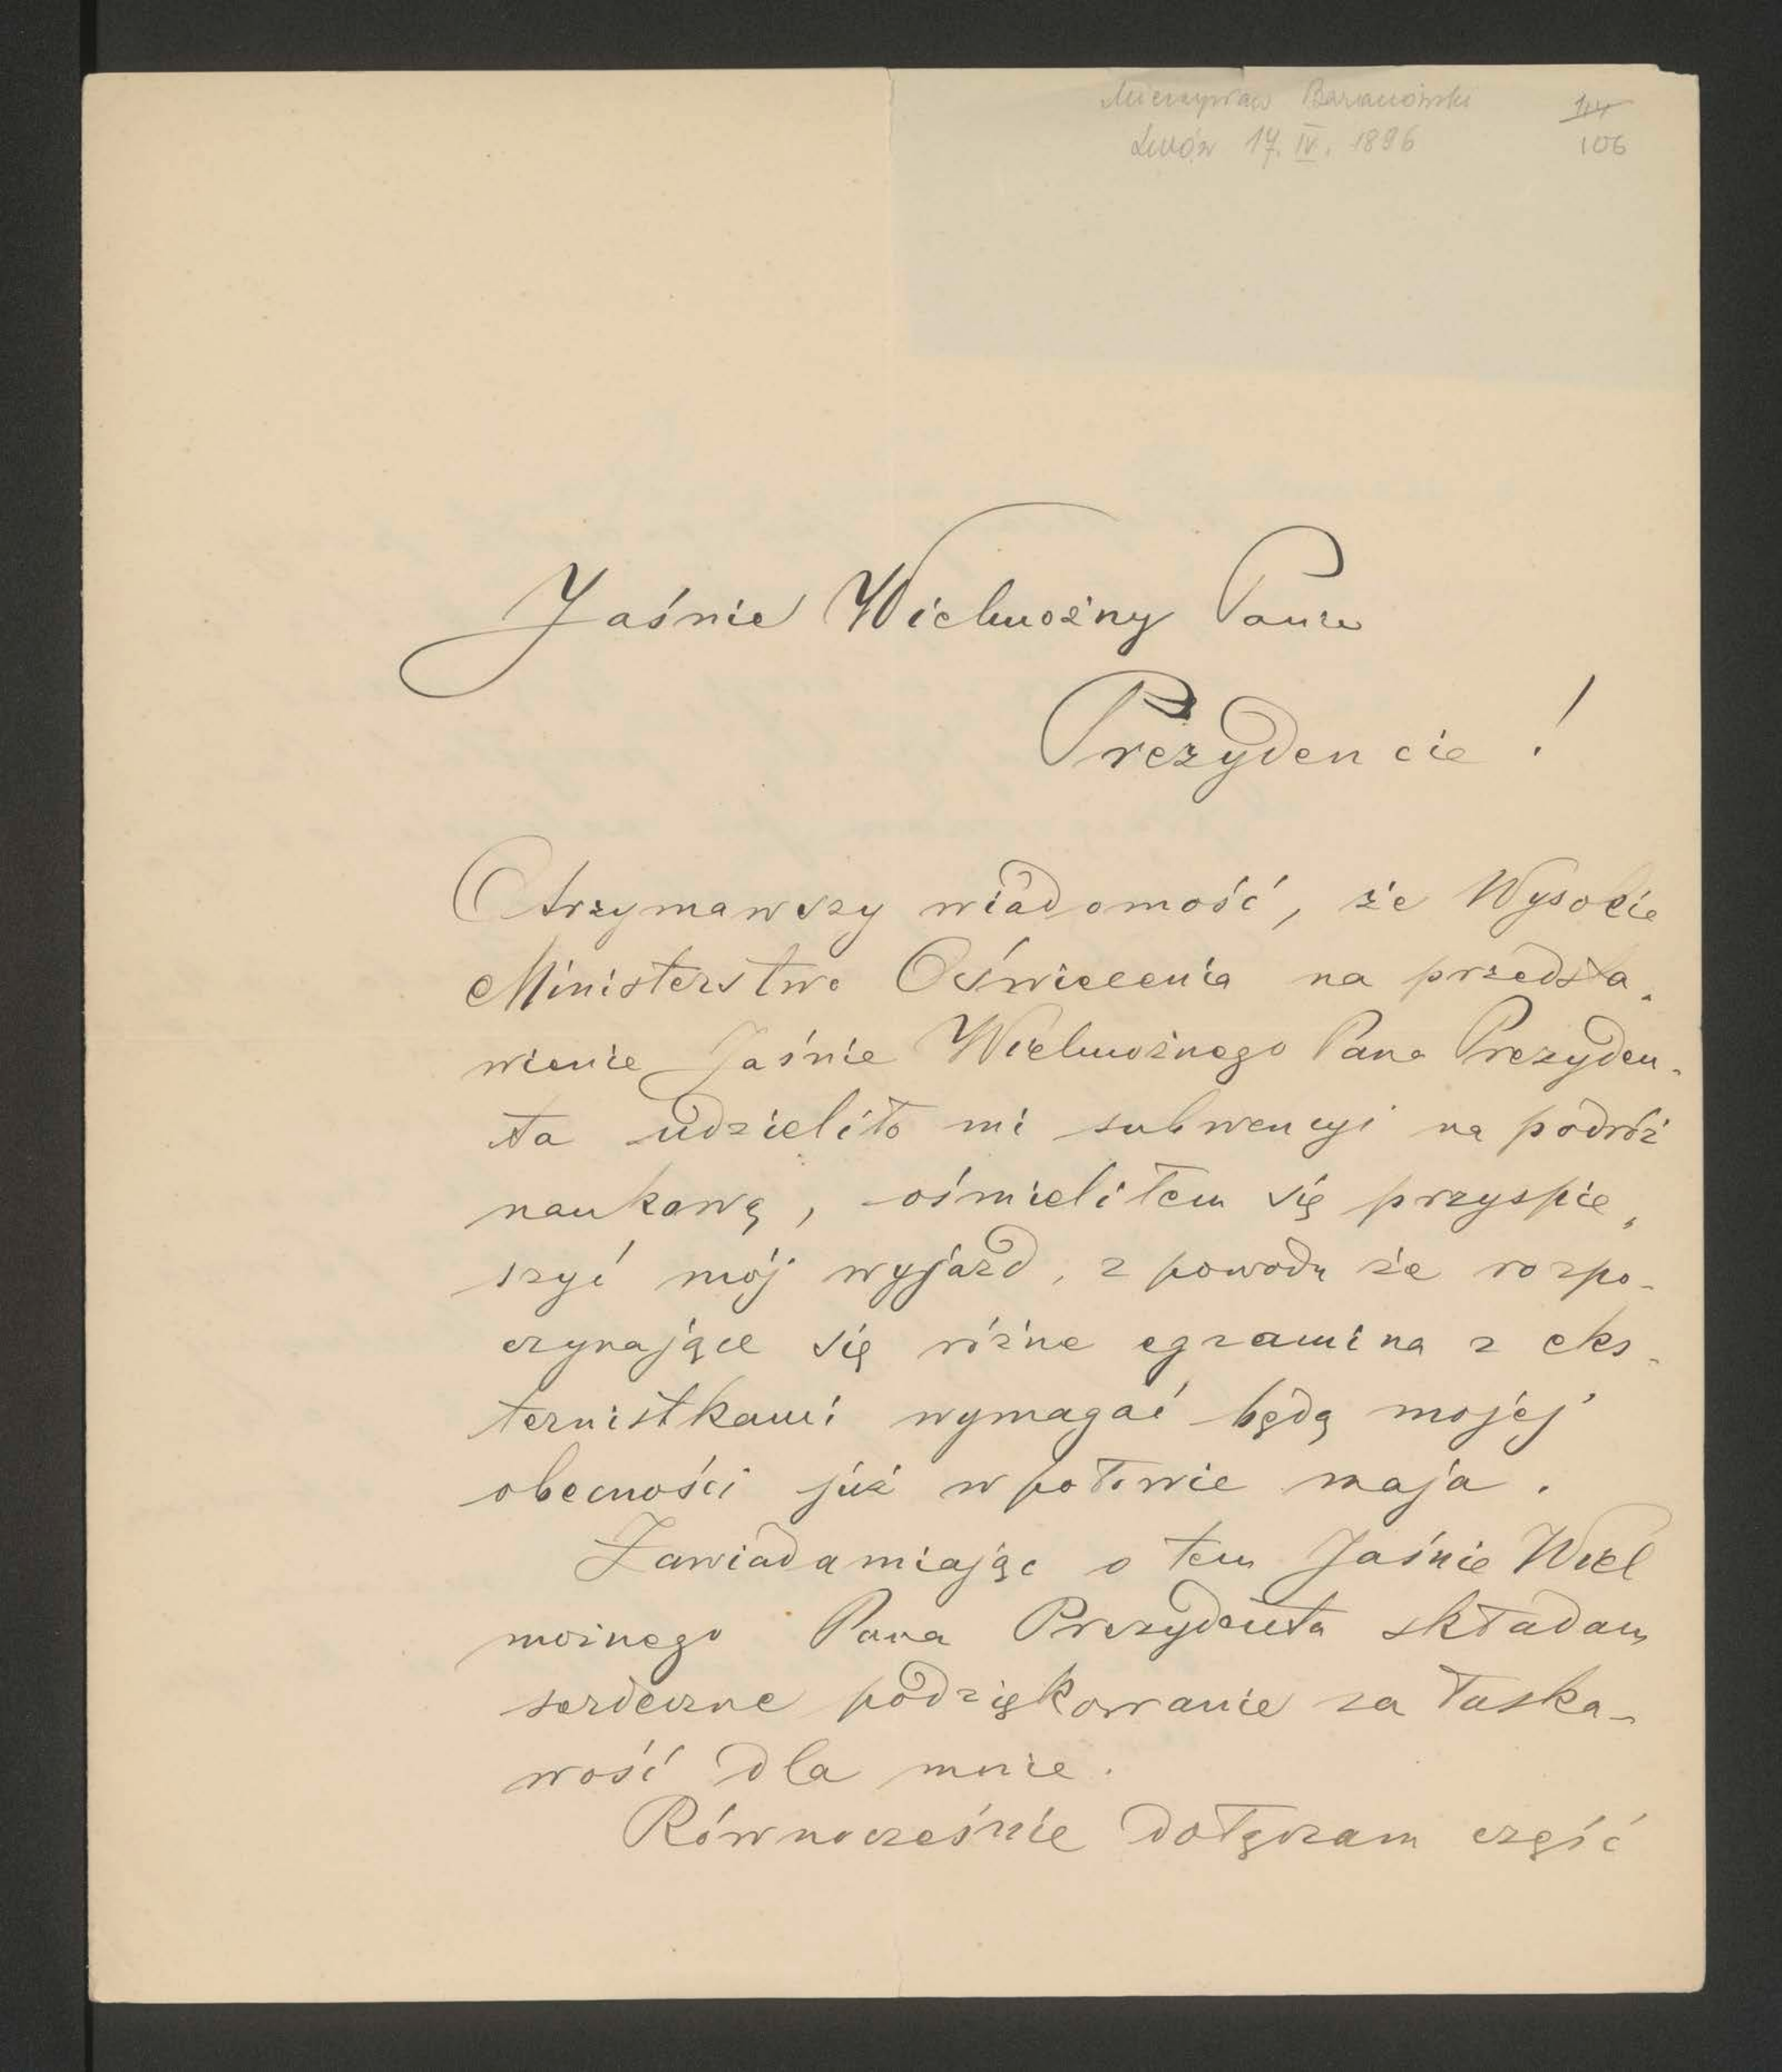 Mieczysław Baranowski
Lwów 17. IV. 1896
106
Jaśnie Wielmożny Panie
Prezydencie !
Otrzymawszy wiadomość, że Wysokie
Ministerstwo Oświecenia na przedsta-
wienie Jaśnie Wielmożnego Pana Prezyden-
ta udzieliło mi subwencyi na podróż
naukową, ośmieliłem się przyspie-
szyć mój wyjazd, z powodu że rozpo-
czynające się różne egzamina z eks-
ternistkami wymagać będą mojej
obecności już w połowie maja.
Zawiadamiając o tem Jaśnie Wiel
możnego Pana Prezydenta składam
serdeczne podziękowanie za łaska-
wość dla mnie.
Równocześnie dołączam część